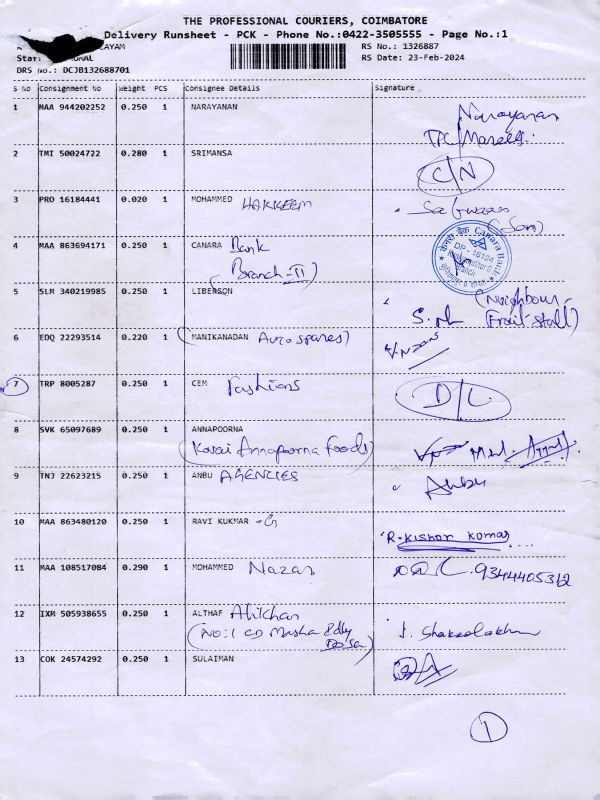 THE PROFESSIONAL COURIERS, COIMBATORE
Delivery Runsheet - PCK - Phone No.:0422-3505555 - Page No.:1
LAYAM RS No.: 1326887
Star: RS Date: 23-Feb-2024
DRS No.: DCJB132688701
S No Consignment No Weight PCS Consignee Details Signature
1 MAA 944202252 0.250 1 NARAYANAN Narayanan
2 TMI 50024722 0.280 1 SRIMANSA C/N
3 PRO 16184441 0.020 1 MOHAMMED HAKKEEM
(Son)
4 MAA 863694171 0.250 1 CANARA Bank
(Branch-II)
केनरा बैंक Canara Bank
DP - 16124
Branch
5 SLM 340219985 0.250 1 LIBERSON (Neighbour-
Fruit stall)
6 EDQ 22293514 0.220 1 MANIKANADAN Auto spares)
7 TRP 8005287 0.250 1 CEM Fashions D/L
8 SVK 65097689 0.250 1 ANNAPOORNA
(Kovai Annapoorna Foods)
9 TNJ 22623215 0.250 1 ANBU AGENCIES Anbu
10 MAA 863480120 0.250 1 RAVI KUKMAR -G R-Kishor Kumar
11 MAA 108517084 0.290 1 MOHAMMED Nazar 9344405312
12 IXM 505938655 0.250 1 ALTHAF Alikhan
(No:1 CD Masha Edly
Dosa)
13 COK 24574292 0.250 1 SULAIMAN
1